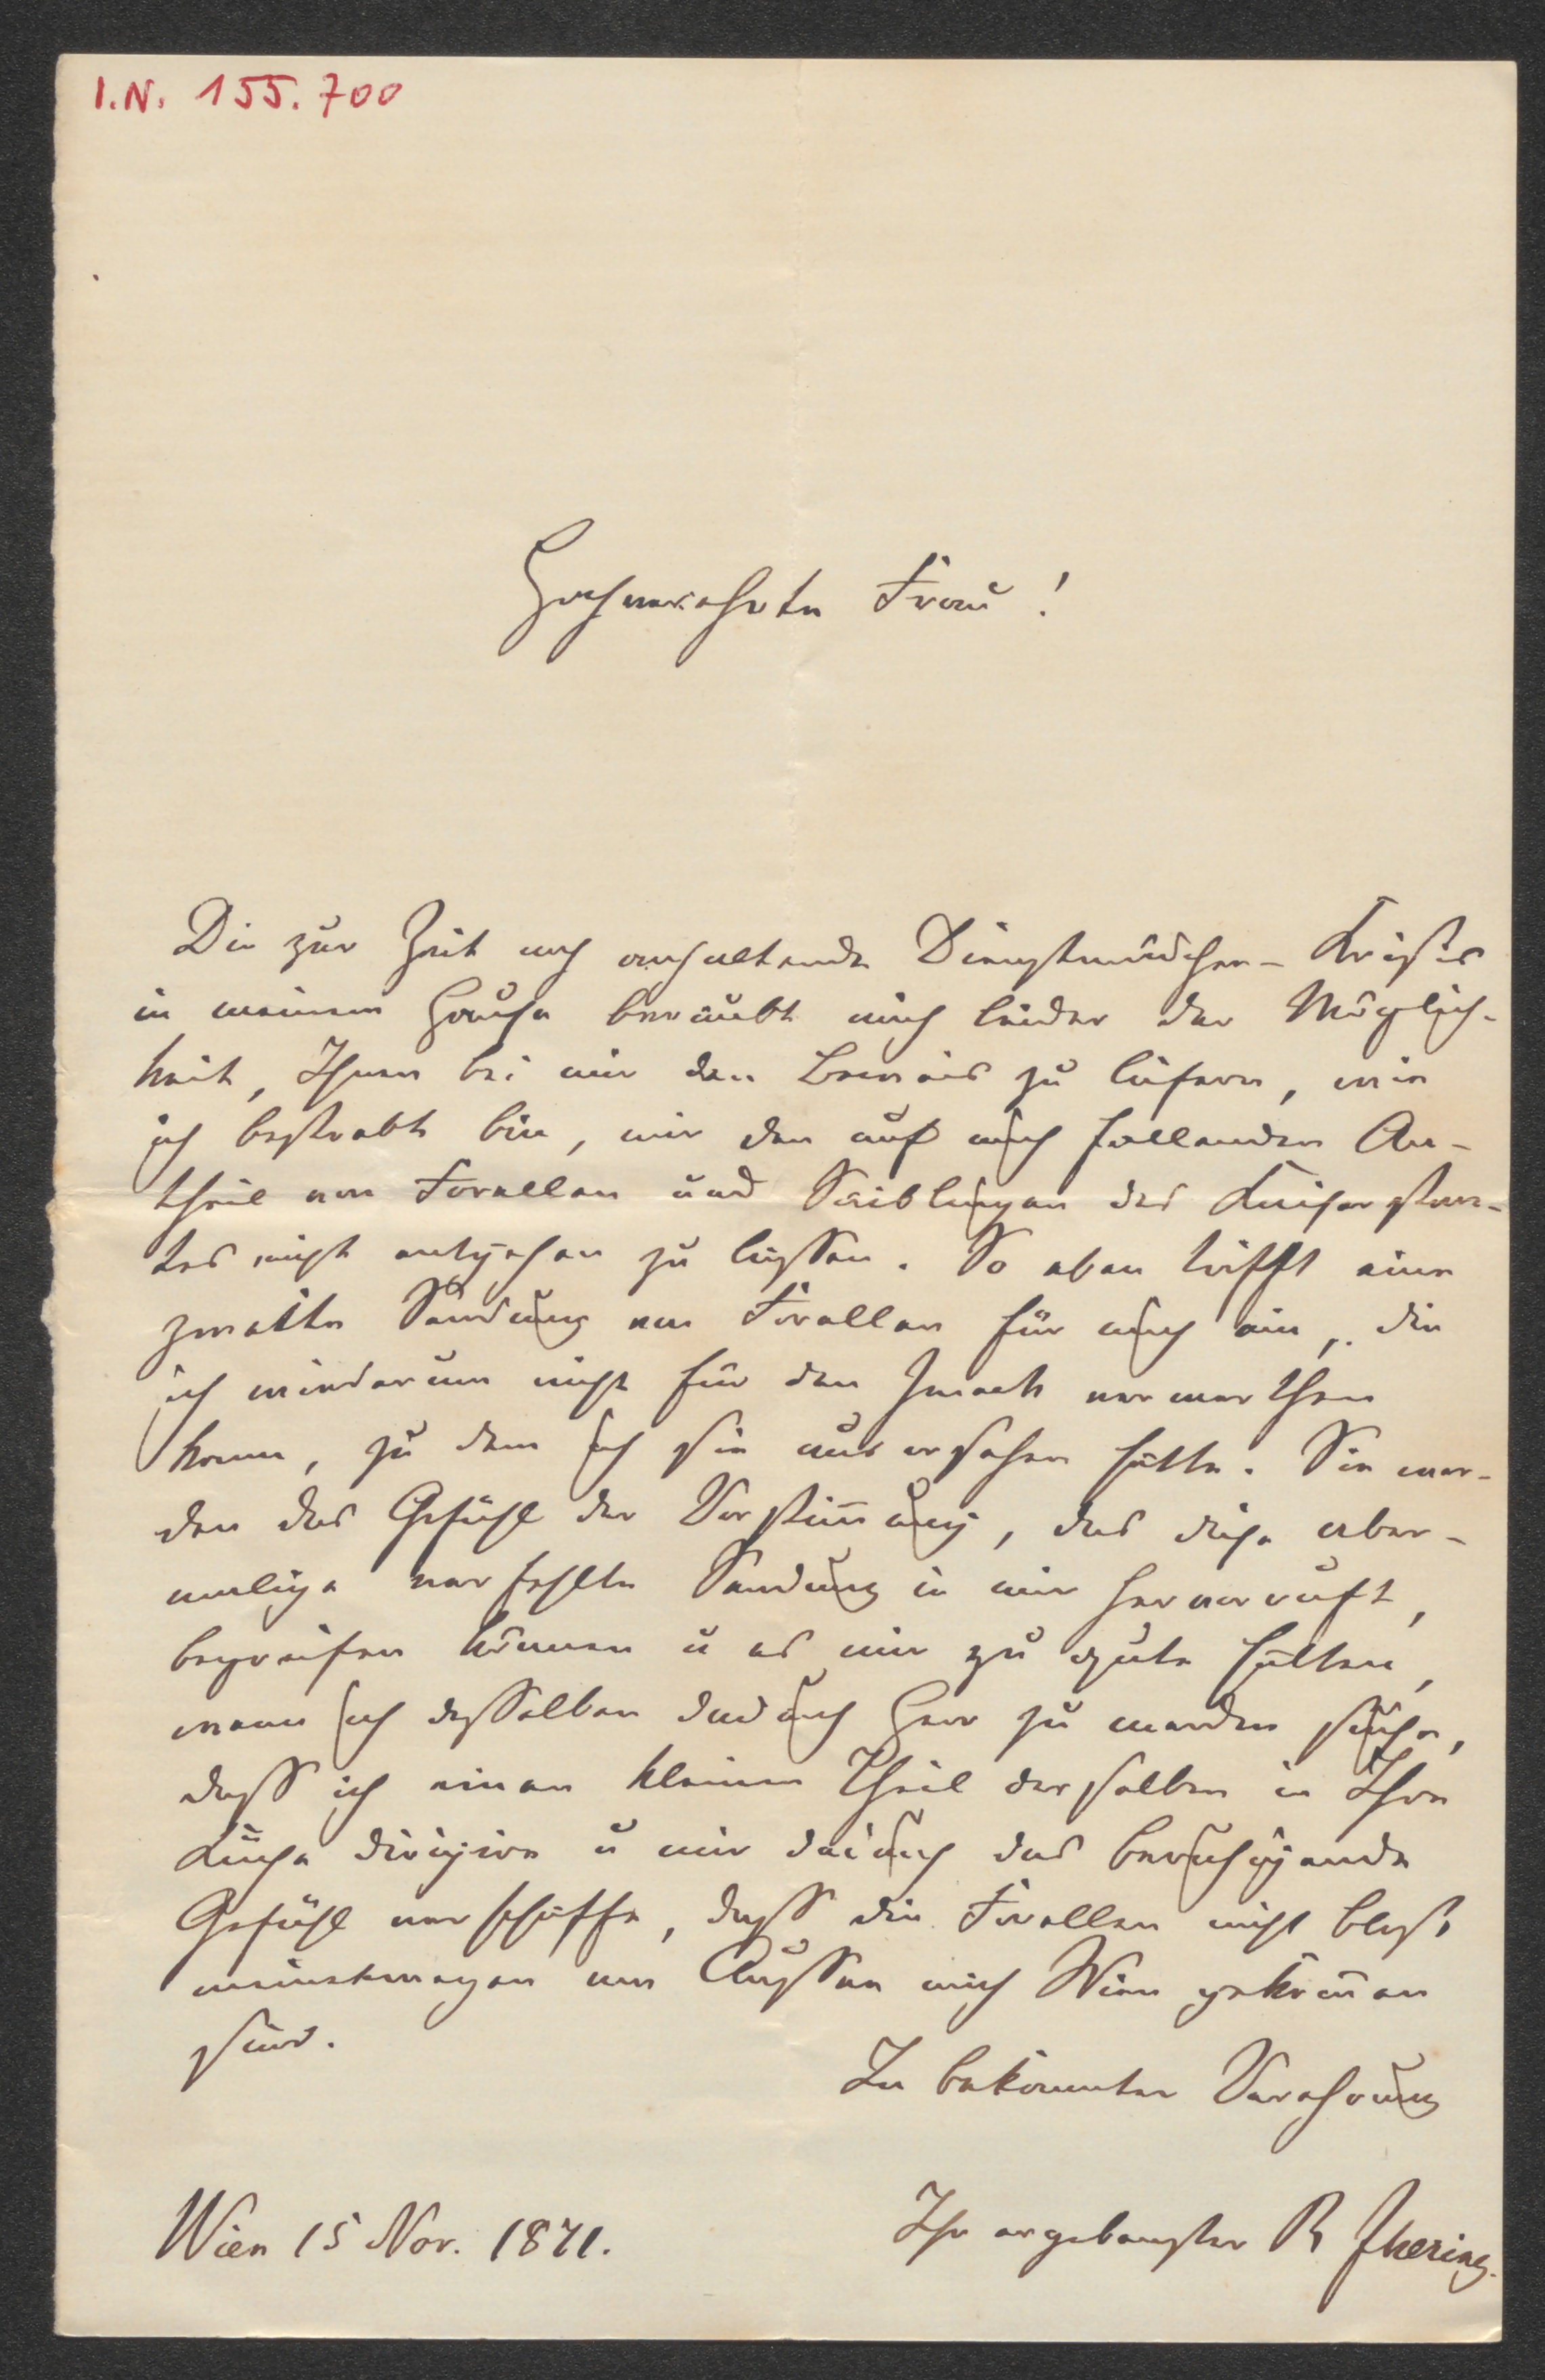 I.N. 155.700
Hochverehrte Frau!
Die zur Zeit noch anhaltende Dienstmädchen-Krisis
in meinem Hause beraubt mich leider der Möglich-
keit, Ihnen bei mir den Beweis zu liefern, wie
ich bestrebt bin, mir den auf mich fallenden An-
theil von Forellen und Saiblingen des Kaiserstaa-
tes nicht entgehen zu lassen. So eben trifft eine
zweite Sendung von Forellen für mich ein, die
ich wiederum nicht für den Zweck verwerthen
kann, zu dem ich sie ausersehen hatte. Sie wer-
den das Gefühl der Verstim̅ung, das diese aber-
malige verfehlte Sendung in mir hervorruft,
begreifen können u es mir zu gute halten,
wenn ich desselben dadurch Herr zu werden suche,
dass ich einen kleinen Theil derselben in Ihre
Küche dirigire u mir dadurch das beruhigende
Gefühl verschaffe, dass die Forellen nicht bloss
meinetwegen von Aussee nach Wien gekom̅en
sind.
In bekannter Verehrung
Wien 15 Nov. 1871.
Ihr ergebenster R Jhering.